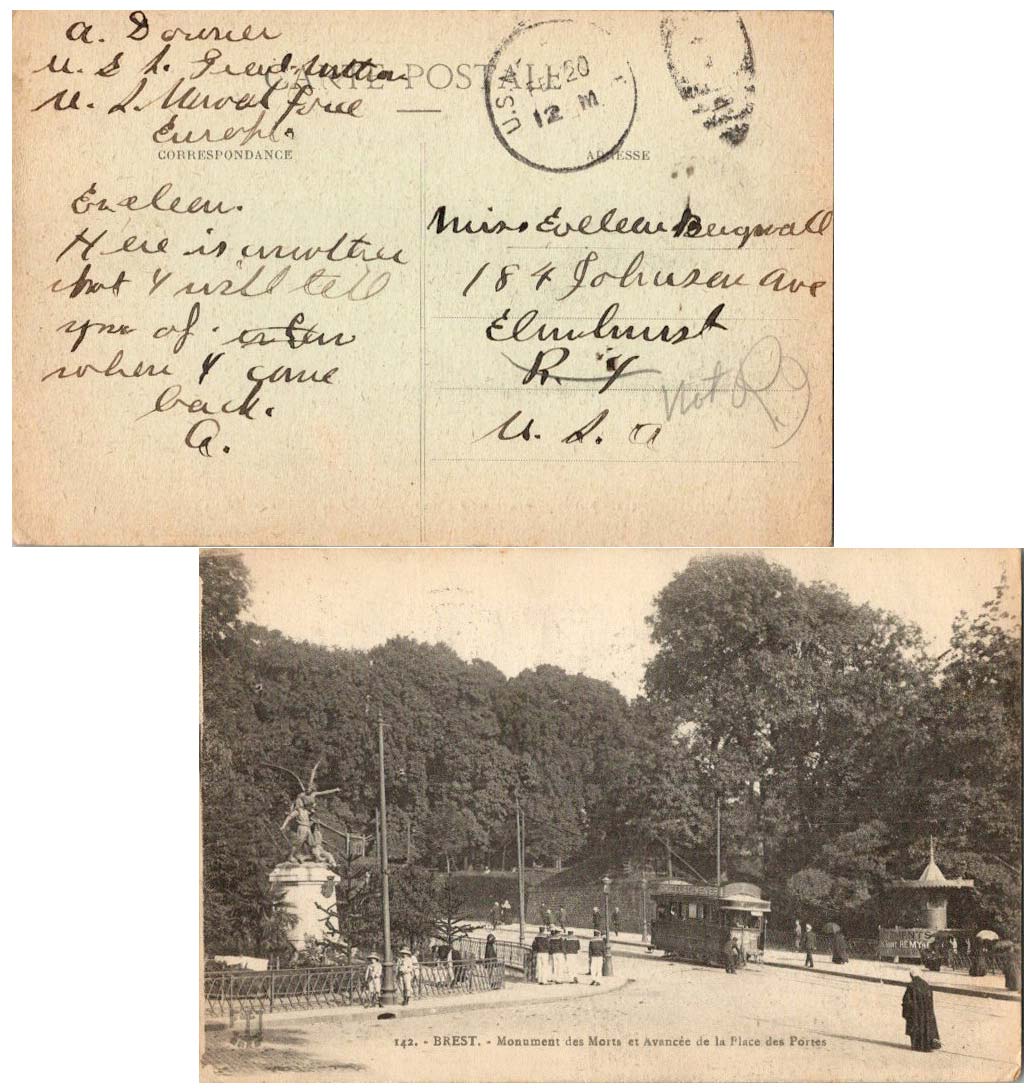 A. Downer
U. S. S.
U. S. Naval Force
Europe.
CARTE POSTALE
U.S.
20
12 M
CORRESPONDANCE
ADRESSE
Here is another
that I will tell
you of
where I come
back.
A.
Miss Eveleen Bergwall
184 Johnson Ave
Elmhurst
R. Y
not R
U. S. A
MENTS
REMY
142. - BREST. - Monument des Morts et Avancée de la Place des Portes